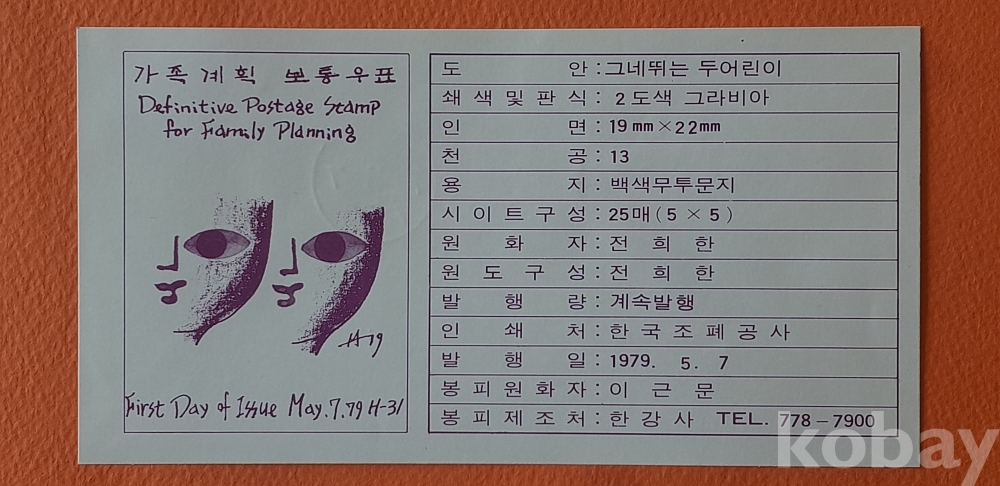 가족계획 보통우표
Definitive Postage Stamp
for Family Planning
H 79
First Day of Issue May. 7. 79 H-31
도 안 : 그네뛰는 두어린이
쇄색및판식 : 2도색 그라비아
인 면 : 19mm×22mm
천 공 : 13
용 지 : 백색무투문지
시이트구성 : 25매 (5 × 5)
원 화 자 : 전 희 한
원도구성 : 전 희 한
발 행 량 : 계속발행
인 쇄 처 : 한국조폐공사
발 행 일 : 1979. 5. 7
봉피원화자 : 이 근 문
봉피제조처 : 한강사 TEL. 778-7900
kobay